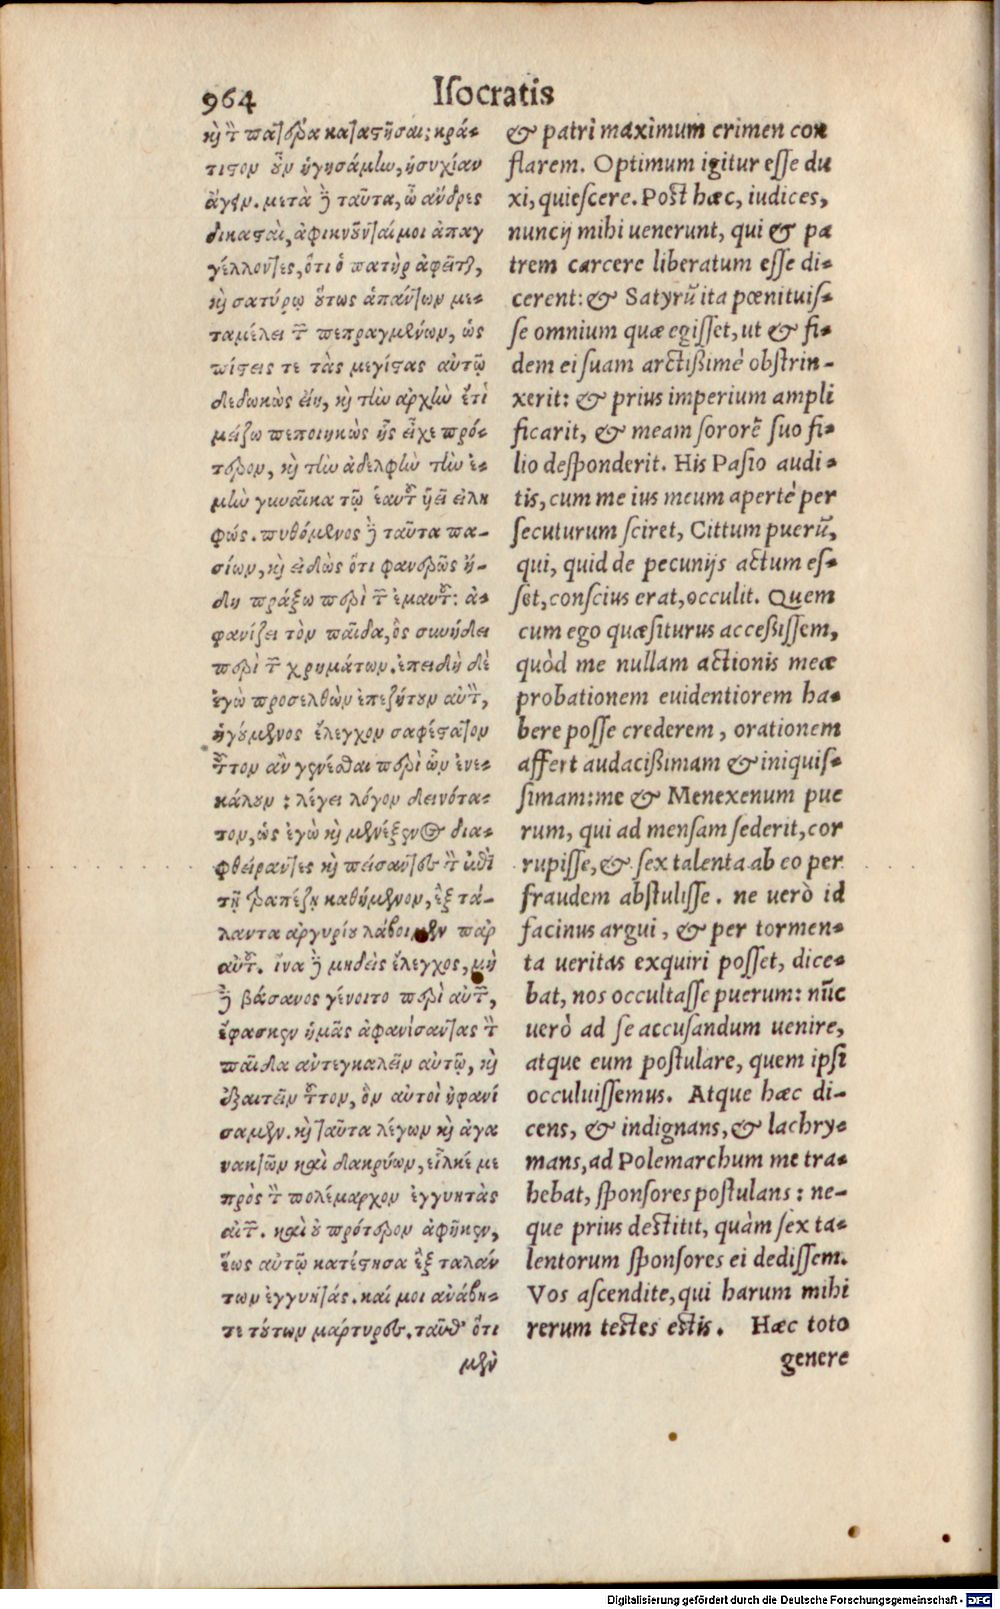 964 Isocratis
καὶ τὸν πατέρα καταστῆσαι; κρά-
τιστον οὖν ἡγησάμην, ἡσυχίαν
ἄγειν. μετὰ δὲ ταῦτα, ὦ ἄνδρες
δικασταὶ, ἀφικνοῦνταί μοι ἀπαγ
γέλλοντες, ὅτι ὁ πατὴρ ἀφεῖται,
καὶ σατύρῳ οὕτως ἁπάντων με-
ταμέλει τῶν πεπραγμένων, ὡς
πίστεις τε τὰς μεγίστας αὐτῷ
δεδωκὼς εἴη, καὶ τὴν ἀρχὴν ἔτι
μείζω πεποιηκὼς ἧς εἶχε πρό-
τερον, καὶ τὴν ἀδελφὴν τὴν ἐ-
μὴν γυναῖκα τῷ ἑαυτοῦ ὑεῖ εἰλη
φώς. πυθόμενος δὲ ταῦτα πα-
σίων, καὶ εἰδὼς ὅτι φανερῶς ἤ-
δη πράξω περὶ τῶν ἐμαυτοῦ: ἀ-
φανίζει τὸν παῖδα, ὃς συνῄδει
περὶ τῶν χρημάτων. ἐπειδὴ δὲ
ἐγὼ προσελθὼν ἐπεζήτουν αὐτὸν,
ἡγούμενος ἔλεγχον σαφέστατον
τοῦτον ἂν γενέσθαι περὶ ὧν ἐνε-
κάλουν: λέγει λόγον δεινότα-
τον, ὡς ἐγὼ καὶ μενέξενος δια-
φθείραντες καὶ πείσαντες τὸν ἐπὶ
τῇ τραπέζῃ καθήμενον, ἓξ τά-
λαντα ἀργυρίου λάβοιμεν παρ
αὐτοῦ. ἵνα δὲ μηδεὶς ἔλεγχος, μὴ
δὲ βάσανος γένοιτο περὶ αὐτῶν,
ἔφασκεν ἡμᾶς ἀφανίσαντας τὸν
παῖδα ἀντεγκαλεῖν αὐτῷ, καὶ
ἐξαιτεῖν τοῦτον, ὃν αὐτοὶ ἠφανί
σαμεν. καὶ ταῦτα λέγων καὶ ἀγα
νακτῶν καὶ δακρύων, εἷλκέ με
πρὸς τὸν πολέμαρχον ἐγγυητὰς
αἰτῶν. καὶ οὐ πρότερον ἀφῆκεν,
ἕως αὐτῷ κατέστησα ἓξ ταλάν
των ἐγγυητάς. καί μοι ἀνάβη-
τε τούτων μάρτυρες. ταῦθ' ὅτι
μὲν
& patri maximum crimen con
flarem. Optimum igitur esse du
xi, quiescere. Post hæc, iudices,
nuncij mihi uenerunt, qui & pa
trem carcere liberatum esse di-
cerent: & Satyrū ita pœnituis-
se omnium quæ egisset, ut & fi-
dem ei suam arctißimè obstrin-
xerit: & prius imperium ampli
ficarit, & meam sororē suo fi-
lio desponderit. His Pasio audi-
tis, cum me ius meum apertè per
secuturum sciret, Cittum puerū,
qui, quid de pecunijs actum es-
set, conscius erat, occulit. Quem
cum ego quæsiturus accessissem,
quòd me nullam actionis meæ
probationem euidentiorem ha-
bere posse crederem, orationem
affert audacißimam & iniquis-
simam: me & Menexenum pue
rum, qui ad mensam sederit, cor
rupisse, & sex talenta ab eo per
fraudem abstulisse. ne uerò id
facinus argui, & per tormen-
ta ueritas exquiri posset, dice-
bat, nos occultasse puerum: nūc
uerò ad se accusandum uenire,
atque eum postulare, quem ipsi
occuluissemus. Atque hæc di-
cens, & indignans, & lachry-
mans, ad Polemarchum me tra-
hebat, sponsores postulans: ne-
que prius destitit, quàm sex ta-
lentorum sponsores ei dedissem.
Vos ascendite, qui harum mihi
rerum testes estis. Hæc toto
genere
Digitalisierung gefördert durch die Deutsche Forschungsgemeinschaft - DFG